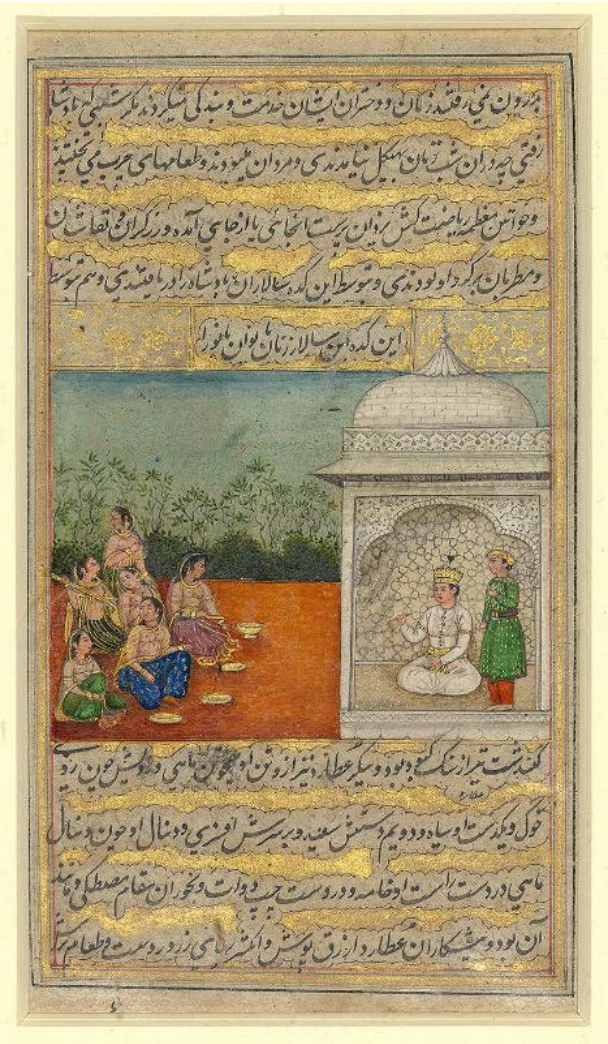 بیرون نمی رفتند زنان و دختران ایشان خدمت و بندگی میکردند مگر شبی که پادشاه
رفتی چه در آن شب زنان بهیکل نیامدندی و مردان میبودند و طعامهای چرب می پختند
و خواتین معظمه ریاضت کش یزدان پرست آنجائی یا از جایی آمده و زرگران و نقاشان
و مطربان بر گرد او بودندی و بتوسط این کده سالاران پادشاه را دریافتندی و هم بتوسط
این کده سالار زنان بانوان بانو را
گنبدش نیز از سنگ کبود بود و پیکر عطارد نیز ازو تن او چون ماهی و رویش چون روی
خوک و یکدست او سیاه و دویم دستش سفید و بر سرش افسری و دنبال او چون دنبال
ماهی در دست راست او خامه و در دست چپ دوات و بخور آن مقام مصطکی و مانند
آن بود و پیشکاران عطارد ازرق پوش و انگشتر زر در دست و طعام